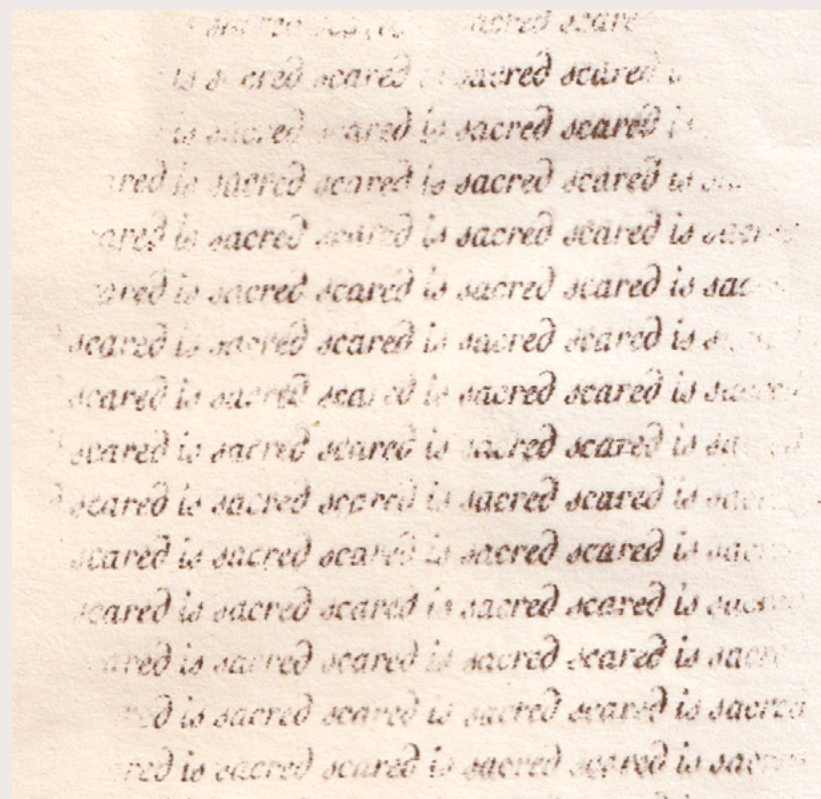 sacred scared
is sacred scared is sacred scared
is sacred scared is sacred scared is
scared is sacred scared is sacred scared is
scared is sacred scared is sacred scared is sacred
scared is sacred scared is sacred scared is sac
scared is sacred scared is sacred scared is
scared is sacred scared is sacred scared is sacred
scared is sacred scared is sacred scared is sa
scared is sacred scared is sacred scared is sacred
scared is sacred scared is sacred scared is sacred
scared is sacred scared is sacred scared is sacred
scared is sacred scared is sacred scared is sacred
is sacred scared is sacred scared is sacred
scared is sacred scared is sacred scared is sacred